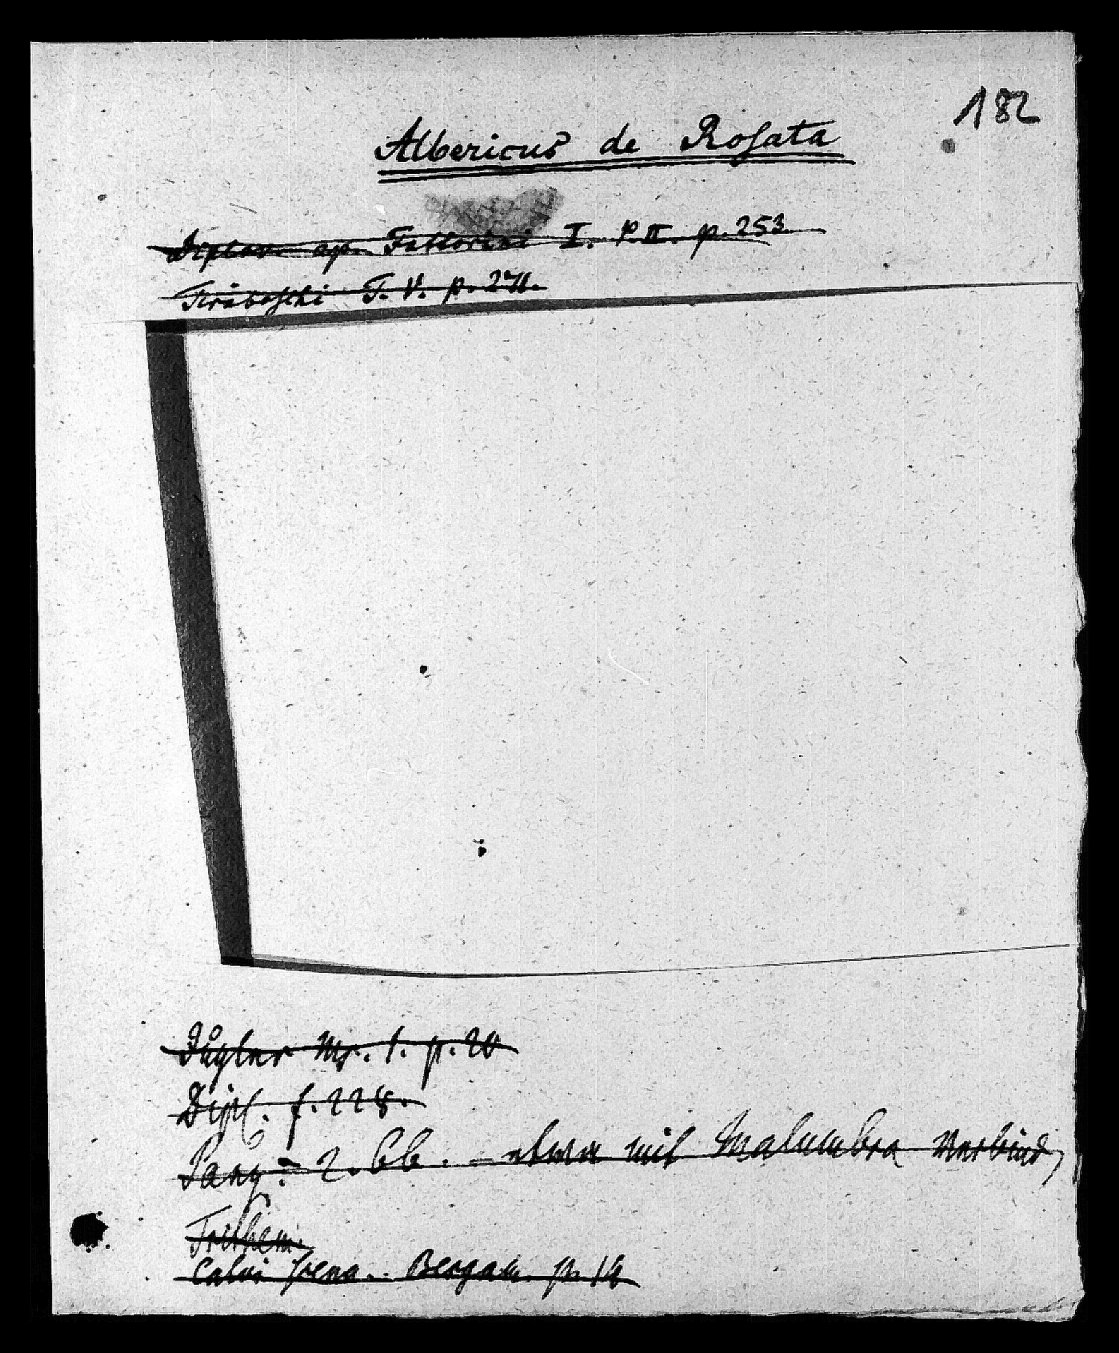 182
Albericus de Rosata
Diplov. ap. Fattorini I. P. II. p. 253
Tiraboschi T. V. p. 271.
Nr. 1. p. 20
Dipl. f. 228.
Panz. 2. 66. – etwa mit Malumbra verbind
Trithem.
Calvi Scena. Bergam. p. 14